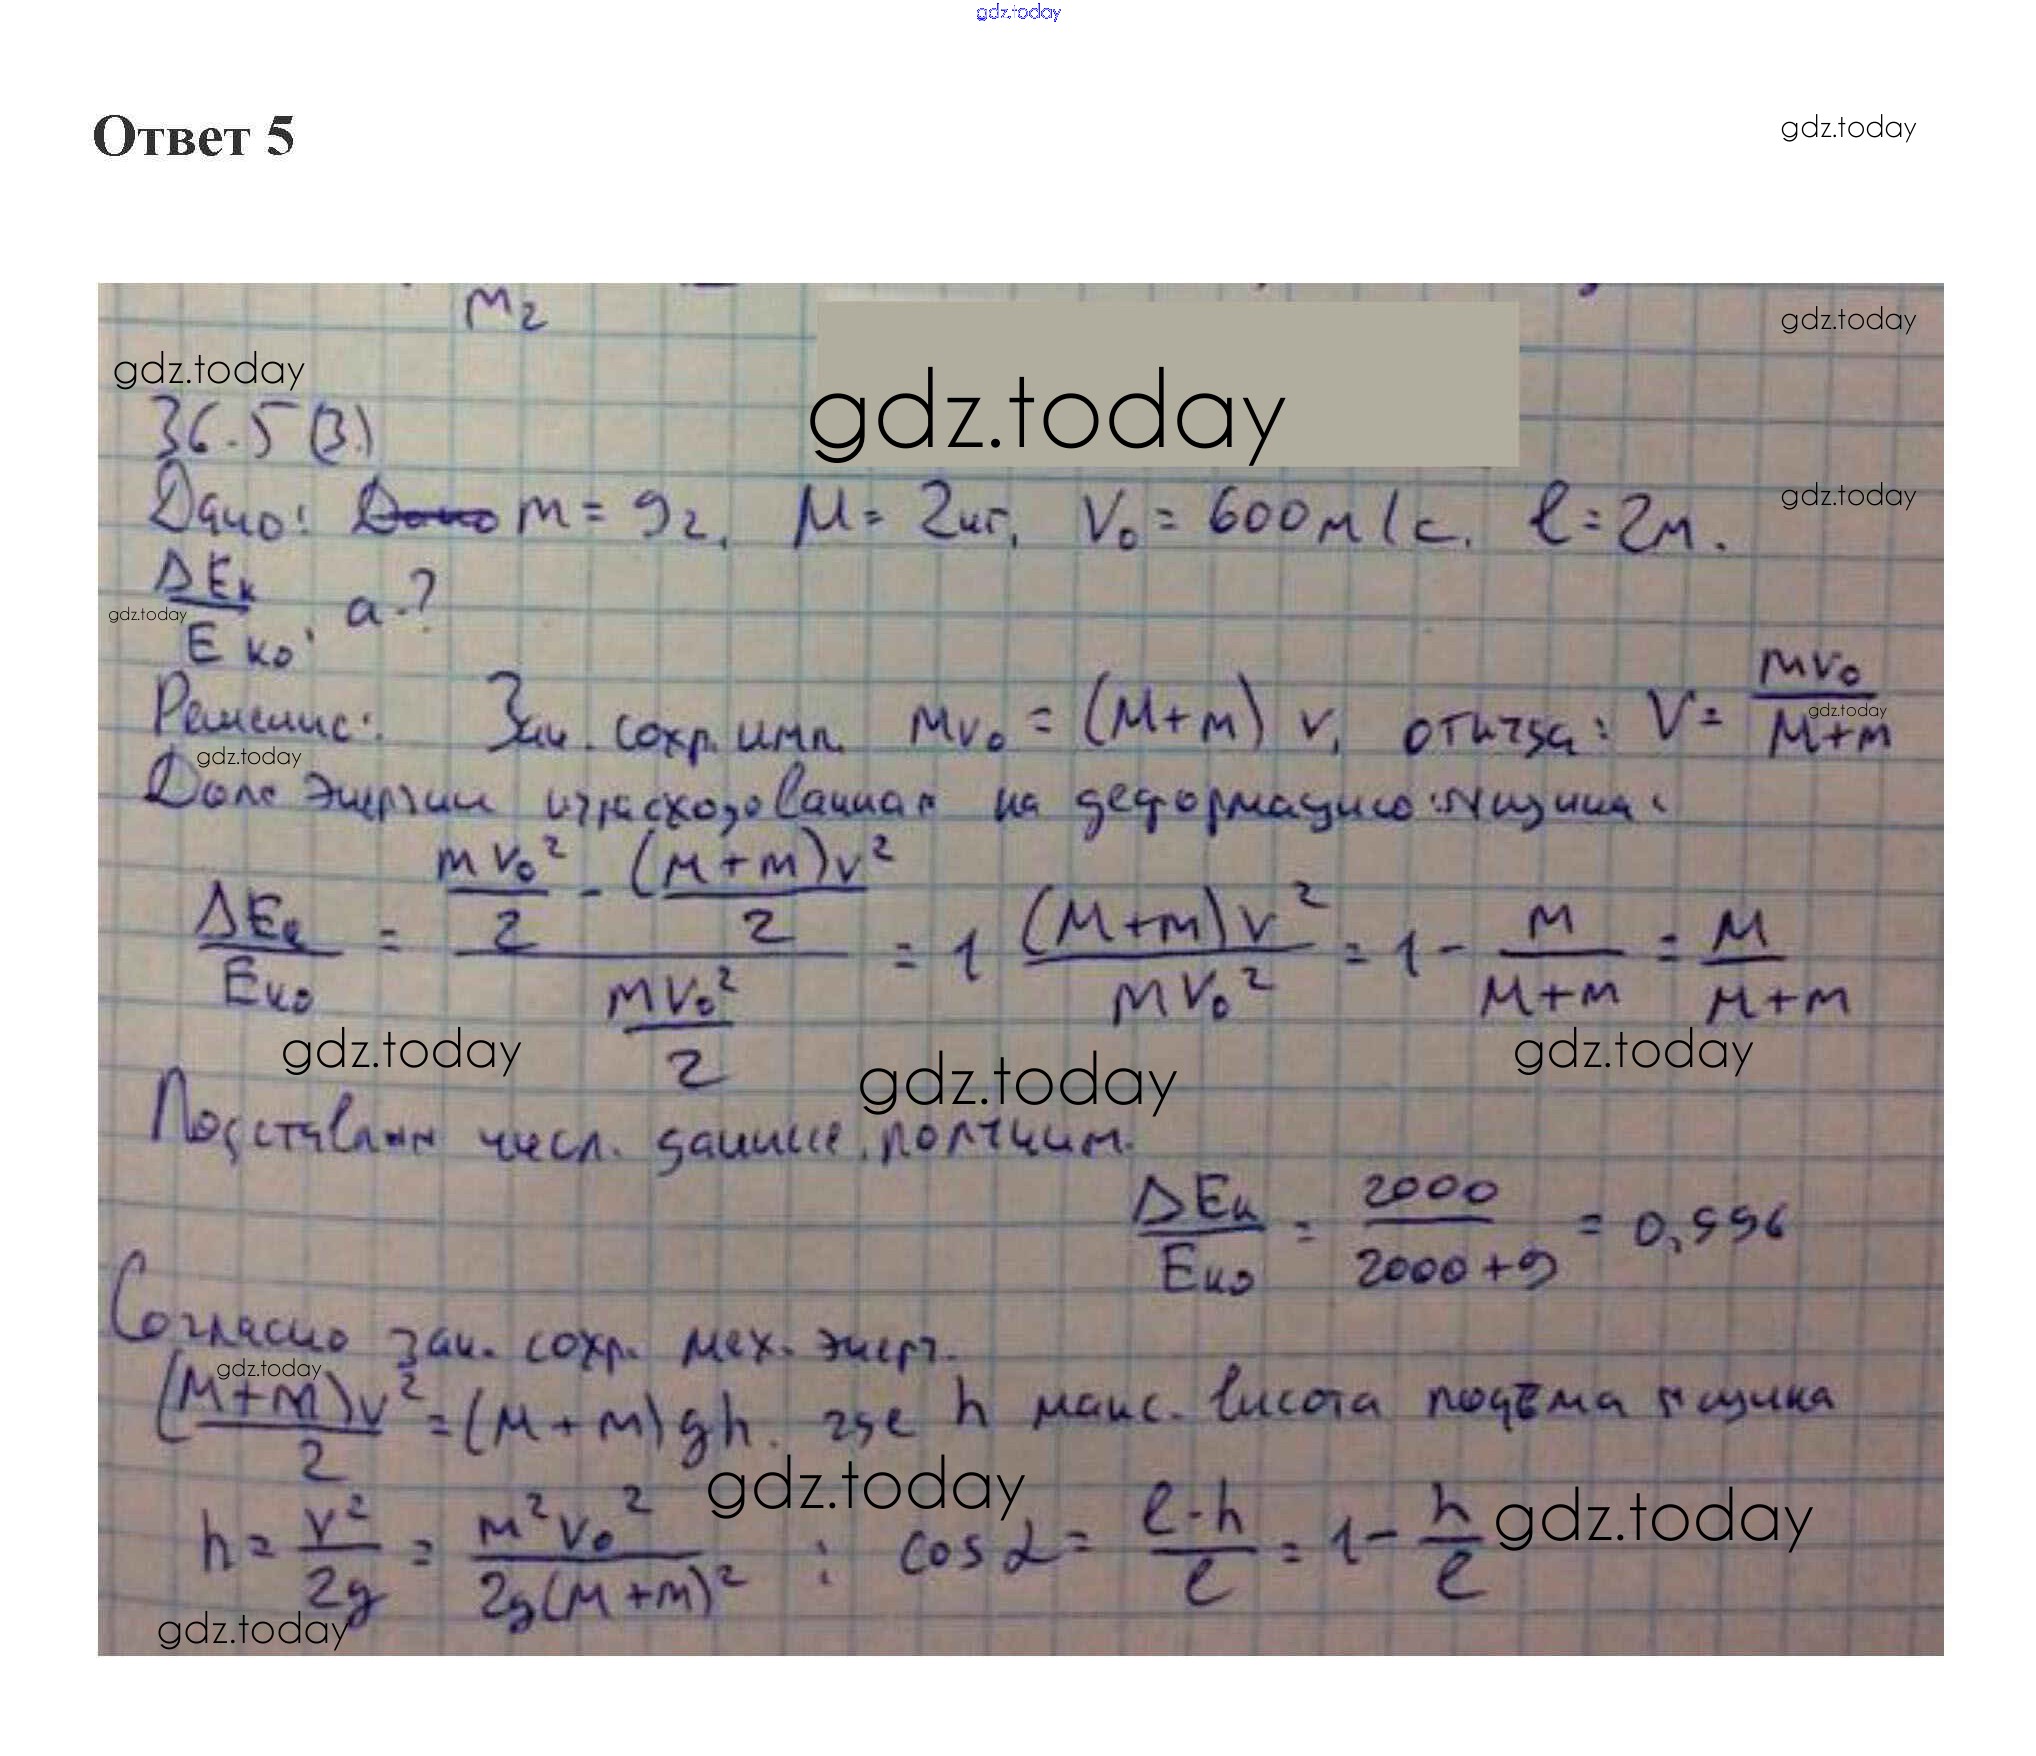 gdz.today
Ответ 5
gdz.today
m₂
gdz.today
gdz.today
gdz.today
36.5 (3.)
Дано: Дано m = 9г. M = 2кг. V₀ = 600м/с. l = 2м.
gdz.today
ΔEк/Eк₀; a-?
gdz.today
Решение: Зак. сохр. имп. mv₀ = (M+m) v, откуда: V = mv₀/(M+m)
gdz.today
gdz.today
Доля энергии израсходованная на деформацию ящика:
ΔEк/Eк₀ = (mv₀²/2 - (M+m)v²/2)/(mv₀²/2) = 1 (M+m)v²/mv₀² = 1 - m/(M+m) = M/(M+m)
gdz.today
gdz.today
gdz.today
Подставляя числ. данные, получим.
ΔEк/Eк₀ = 2000/(2000+9) = 0,996
Согласно зак. сохр. мех. энерг.
gdz.today
(M+m)v²/2 = (M+m)gh. где h макс. высота подъёма ящика
gdz.today
gdz.today
h = v²/2g = m²v₀²/2g(M+m)² ; cos α = (l-h)/l = 1 - h/l
gdz.today